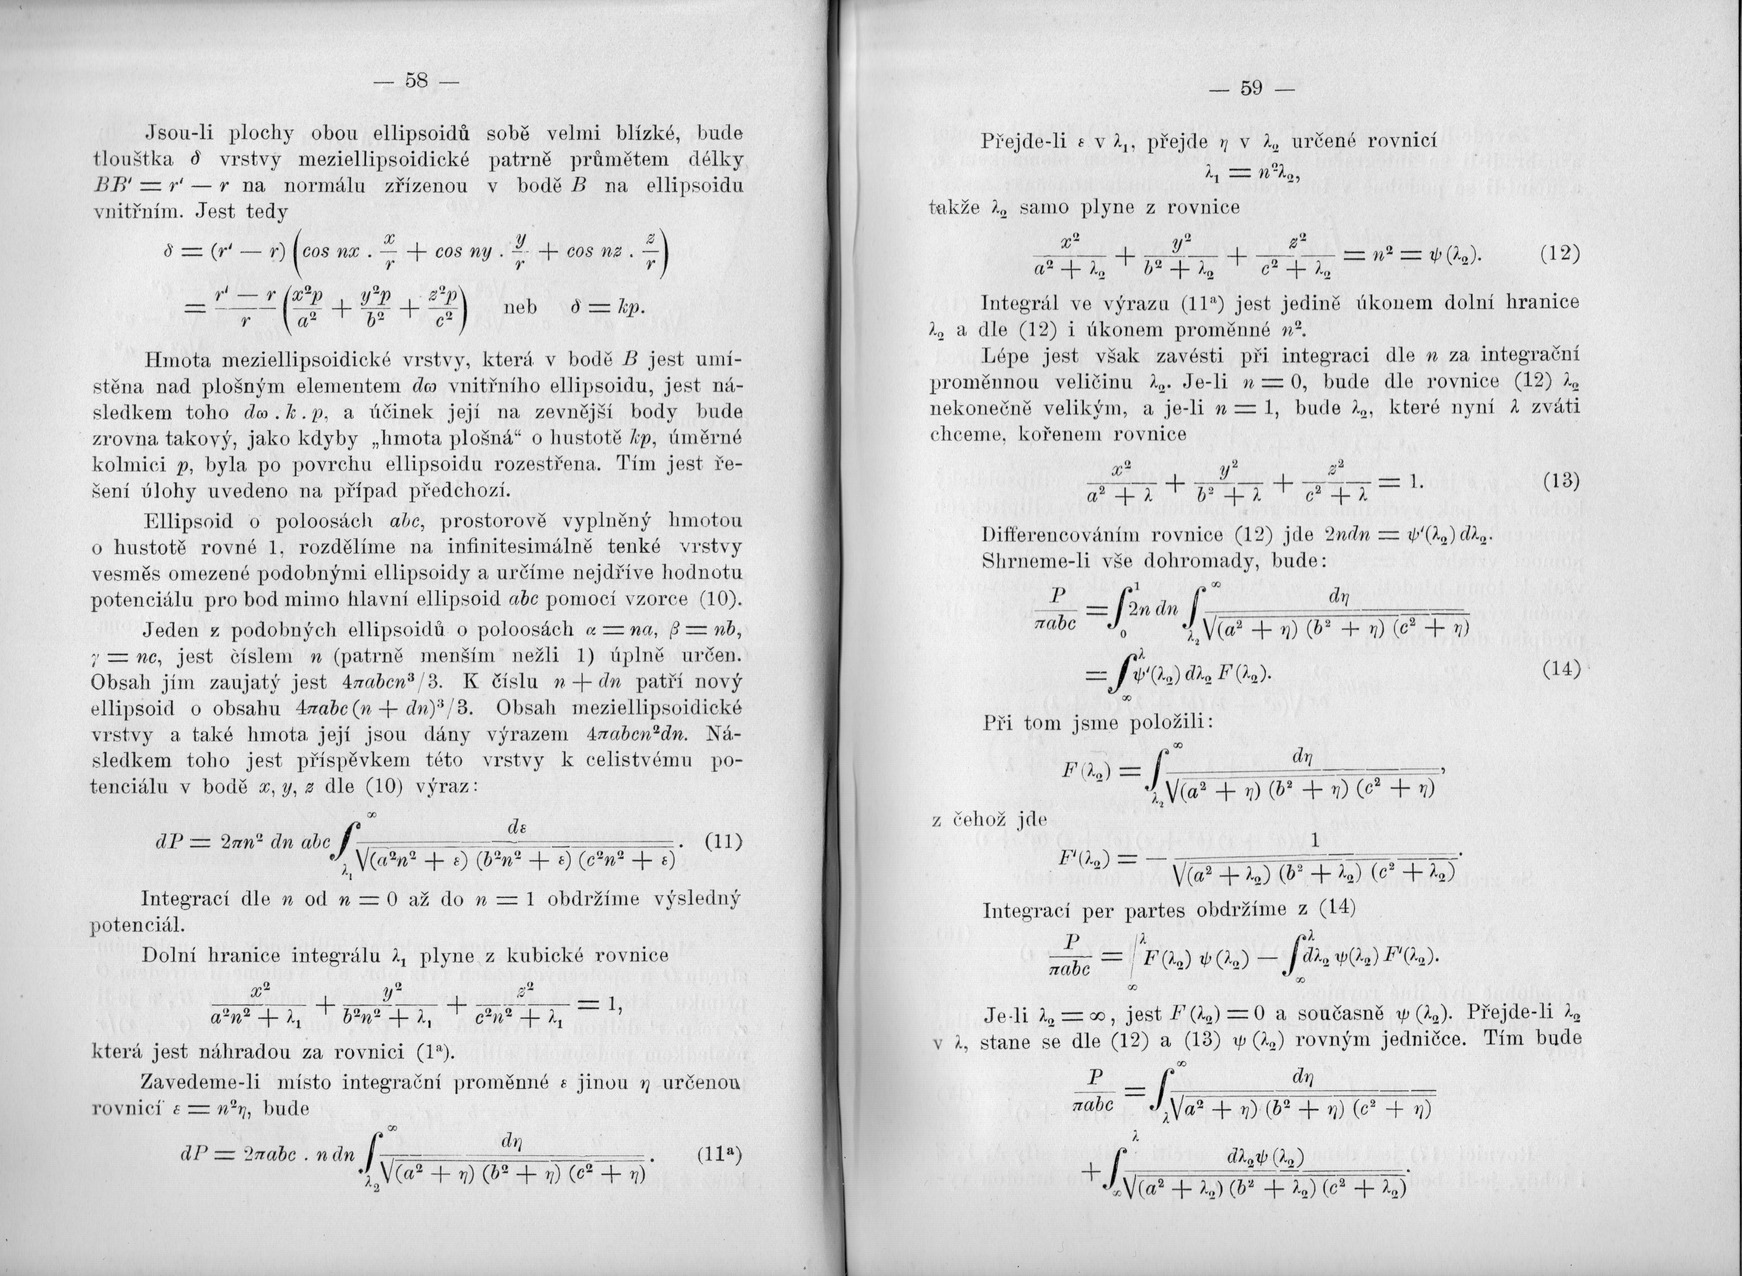 — 58 —
Jsou-li plochy obou ellipsoidů sobě velmi blízké, bude
tloušťka δ vrstvy meziellipsoidické patrně průmětem délky
BB' = r' — r na normálu zřízenou v bodě B na ellipsoidu
vnitřním. Jest tedy
δ = (r' — r) (cos nx . x/r + cos ny . y/r + cos nz . z/r)
= (r' — r)/r (x²p/a² + y²p/b² + z²p/c²) neb δ = kp.
Hmota meziellipsoidické vrstvy, která v bodě B jest umí-
stěna nad plošným elementem dω vnitřního ellipsoidu, jest ná-
sledkem toho dω . k . p, a účinek její na zevnější body bude
zrovna takový, jako kdyby „hmota plošná“ o hustotě kp, úměrné
kolmici p, byla po povrchu ellipsoidu rozestřena. Tím jest ře-
šení úlohy uvedeno na případ předchozí.
Ellipsoid o poloosách abc, prostorově vyplněný hmotou
o hustotě rovné 1, rozdělíme na infinitesimálně tenké vrstvy
vesměs omezené podobnými ellipsoidy a určíme nejdříve hodnotu
potenciálu pro bod mimo hlavní ellipsoid abc pomocí vzorce (10).
Jeden z podobných ellipsoidů o poloosách α = na, β = nb,
γ = nc, jest číslem n (patrně menším nežli 1) úplně určen.
Obsah jím zaujatý jest 4πabcn³/3. K číslu n + dn patří nový
ellipsoid o obsahu 4πabc (n + dn)³/3. Obsah meziellipsoidické
vrstvy a také hmota její jsou dány výrazem 4πabcn²dn. Ná-
sledkem toho jest příspěvkem této vrstvy k celistvému po-
tenciálu v bodě x, y, z dle (10) výraz:
dP = 2πn² dn abc ∫_{λ₁}^{∞} dε/√(a²n² + ε) (b²n² + ε) (c²n² + ε). (11)
Integrací dle n od n = 0 až do n = 1 obdržíme výsledný
potenciál.
Dolní hranice integrálu λ₁ plyne z kubické rovnice
x²/(a²n² + λ₁) + y²/(b²n² + λ₁) + z²/(c²n² + λ₁) = 1,
která jest náhradou za rovnici (1ª).
Zavedeme-li místo integrační proměnné ε jinou η určenou
rovnicí ε = n²η, bude
dP = 2πabc . n dn ∫_{λ₂}^{∞} dη/√(a² + η) (b² + η) (c² + η). (11ª)
— 59 —
Přejde-li ε v λ₁, přejde η v λ₂ určené rovnicí
λ₁ = n²λ₂,
takže λ₂ samo plyne z rovnice
x²/(a² + λ₂) + y²/(b² + λ₂) + z²/(c² + λ₂) = n² = ψ (λ₂). (12)
Integrál ve výrazu (11ª) jest jedině úkonem dolní hranice
λ₂ a dle (12) i úkonem proměnné n².
Lépe jest však zavésti při integraci dle n za integrační
proměnnou veličinu λ₂. Je-li n = 0, bude dle rovnice (12) λ₂
nekonečně velikým, a je-li n = 1, bude λ₂, které nyní λ zváti
chceme, kořenem rovnice
x²/(a² + λ) + y²/(b² + λ) + z²/(c² + λ) = 1. (13)
Differencováním rovnice (12) jde 2ndn = ψ'(λ₂) dλ₂.
Shrneme-li vše dohromady, bude:
P/πabc = ∫_{0}^{1} 2n dn ∫_{λ₂}^{∞} dη/√(a² + η) (b² + η) (c² + η)
= ∫_{∞}^{λ} ψ'(λ₂) dλ₂ F (λ₂). (14)
Při tom jsme položili:
F (λ₂) = ∫_{λ₂}^{∞} dη/√(a² + η) (b² + η) (c² + η),
z čehož jde
F'(λ₂) = — 1/√(a² + λ₂) (b² + λ₂) (c² + λ₂).
Integrací per partes obdržíme z (14)
P/πabc = |_{∞}^{λ} F (λ₂) ψ (λ₂) — ∫_{∞}^{λ} dλ₂ ψ(λ₂) F'(λ₂).
Je-li λ₂ = ∞, jest F (λ₂) = 0 a současně ψ (λ₂). Přejde-li λ₂
v λ, stane se dle (12) a (13) ψ (λ₂) rovným jedničce. Tím bude
P/πabc = ∫_{λ}^{∞} dη/√a² + η) (b² + η) (c² + η)
+ ∫_{∞}^{λ} dλ₂ψ (λ₂)/√(a² + λ₂) (b² + λ₂) (c² + λ₂).